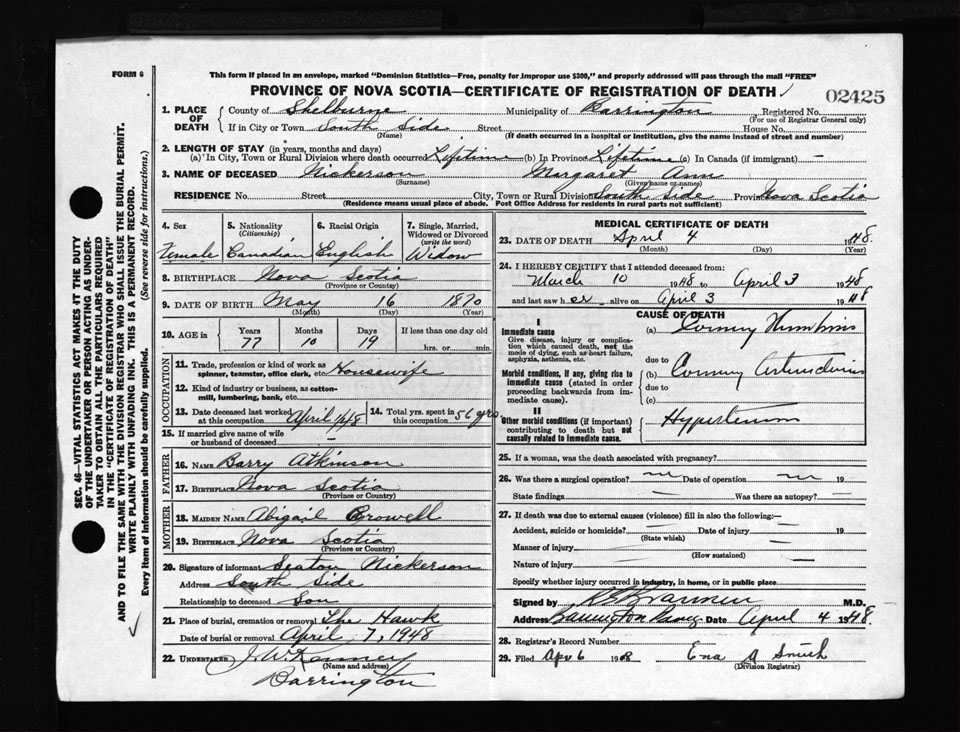 FORM 6
This form if placed in an envelope, marked "Dominion Statistics—Free, penalty for improper use $300," and properly addressed will pass through the mail "FREE"
PROVINCE OF NOVA SCOTIA—CERTIFICATE OF REGISTRATION OF DEATH
02425
1. PLACE OF DEATH County of Shelburne Municipality of Barrington Registered No.
(For use of Registrar General only)
If in City or Town South Side Street House No.
(Name) (If death occurred in a hospital or institution, give the name instead of street and number)
2. LENGTH OF STAY (in years, months and days)
(a) In City, Town or Rural Division where death occurred Lifetime (b) In Province Lifetime (c) In Canada (if immigrant) —
3. NAME OF DECEASED Nickerson Margaret Ann
(Surname) (Given name or names)
RESIDENCE No. Street City, Town or Rural Division South Side Province Nova Scotia
(Residence means usual place of abode. Post Office Address for residents in rural parts not sufficient)
4. Sex 5. Nationality (Citizenship) 6. Racial Origin 7. Single, Married, Widowed or Divorced (write the word)
Female Canadian English Widow
8. BIRTHPLACE Nova Scotia
(Province or Country)
9. DATE OF BIRTH May 16 1870
(Month) (Day) (Year)
10. AGE in Years Months Days If less than one day old
77 10 19 hrs. or min.
OCCUPATION
11. Trade, profession or kind of work as spinner, teamster, office clerk, etc. Housewife
12. Kind of industry or business, as cotton-mill, lumbering, bank, etc.
13. Date deceased last worked at this occupation April 1/48 14. Total yrs. spent in this occupation 56 yrs.
15. If married give name of wife or husband of deceased —
FATHER
16. NAME Barry Atkinson
17. BIRTHPLACE Nova Scotia
(Province or Country)
MOTHER
18. MAIDEN NAME Abigail Crowell
19. BIRTHPLACE Nova Scotia
(Province or Country)
20. Signature of informant Seaton Nickerson
Address South Side
Relationship to deceased Son
21. Place of burial, cremation or removal The Hawk
Date of burial or removal April 7, 1948
22. UNDERTAKER J. W. Kenney
(Name and address)
Barrington
MEDICAL CERTIFICATE OF DEATH
23. DATE OF DEATH April 4 1948.
(Month) (Day) (Year)
24. I HEREBY CERTIFY that I attended deceased from:
March 10 1948 to April 3 1948
and last saw her alive on April 3 1948
CAUSE OF DEATH
I
Immediate cause (a)
Give disease, injury or complication which caused death, not the mode of dying, such as heart failure, asphyxia, asthenia, etc.
due to
Morbid conditions, if any, giving rise to immediate cause (stated in order proceeding backwards from immediate cause). (b)
due to
(c)
II
Other morbid conditions (if important) contributing to death but not causally related to immediate cause. Hypertension
25. If a woman, was the death associated with pregnancy?
26. Was there a surgical operation? Date of operation 19
State findings — Was there an autopsy? —
27. If death was due to external causes (violence) fill in also the following:—
Accident, suicide or homicide? Date of injury 19
(State which)
Manner of injury
(How sustained)
Nature of injury
Specify whether injury occurred in industry, in home, or in public place
Signed by M.D.
Address Barrington Passage Date April 4 1948.
28. Registrar's Record Number
29. Filed Apr 6 1948 Ena A Smith
(Division Registrar)
SEC. 46—VITAL STATISTICS ACT MAKES IT THE DUTY
OF THE UNDERTAKER OR PERSON ACTING AS UNDER-
TAKER TO OBTAIN ALL THE PARTICULARS REQUIRED
IN THE "CERTIFICATE OF REGISTRATION OF DEATH"
AND TO FILE THE SAME WITH THE DIVISION REGISTRAR WHO SHALL ISSUE THE BURIAL PERMIT.
WRITE PLAINLY WITH UNFADING INK. THIS IS A PERMANENT RECORD.
Every item of information should be carefully supplied. (See reverse side for instructions.)